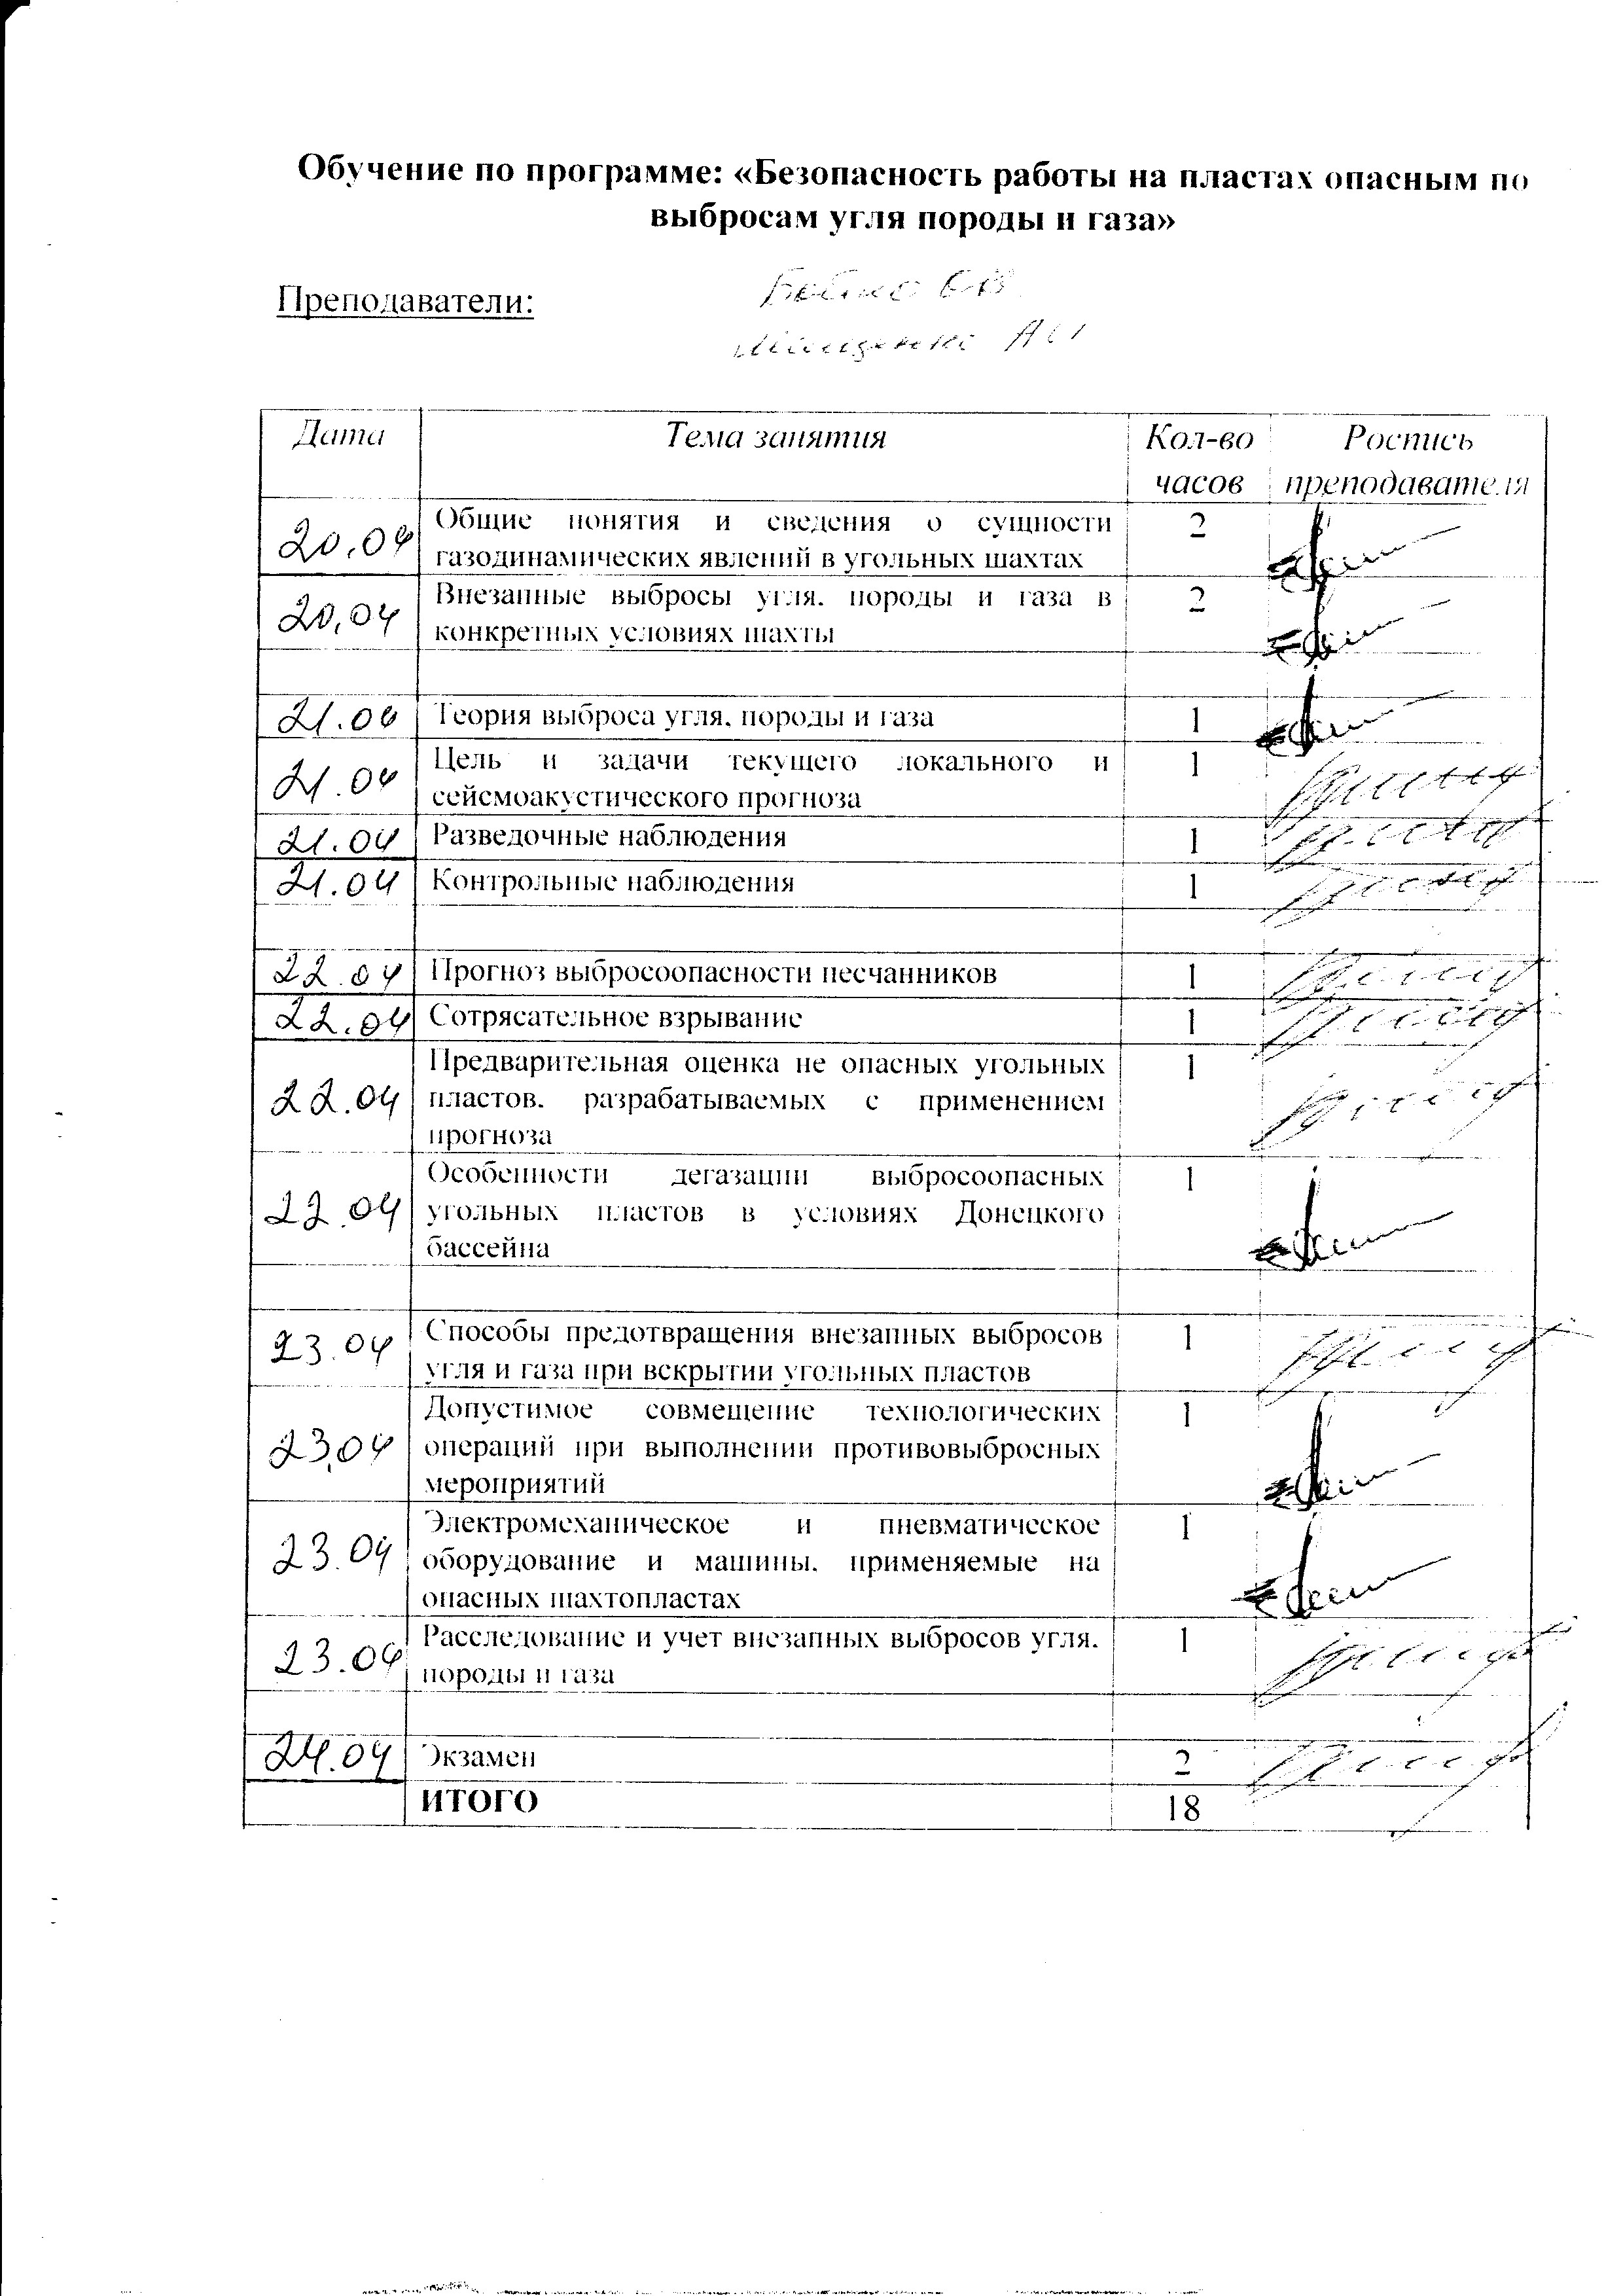 Обучение по программе: «Безопасность работы на пластах опасным по
выбросам угля породы и газа»
Преподаватели:
Дата Тема занятия Кол-во Роспись
часов преподавателя
20.04 Общие понятия и сведения о сущности 2
газодинамических явлений в угольных шахтах
20.04 Внезапные выбросы угля, породы и газа в 2
конкретных условиях шахты
21.04 Теория выброса угля, породы и газа 1
21.04 Цель и задачи текущего локального и 1
сейсмоакустического прогноза
21.04 Разведочные наблюдения 1
21.04 Контрольные наблюдения 1
22.04 Прогноз выбросоопасности песчанников 1
22.04 Сотрясательное взрывание 1
Предварительная оценка не опасных угольных 1
22.04 пластов, разрабатываемых с применением
прогноза
Особенности дегазации выбросоопасных 1
22.04 угольных пластов в условиях Донецкого
бассейна
23.04 Способы предотвращения внезапных выбросов 1
угля и газа при вскрытии угольных пластов
Допустимое совмещение технологических 1
23.04 операций при выполнении противовыбросных
мероприятий
Электромеханическое и пневматическое 1
23.04 оборудование и машины, применяемые на
опасных шахтопластах
23.04 Расследование и учет внезапных выбросов угля, 1
породы и газа
24.04 Экзамен 2
ИТОГО 18